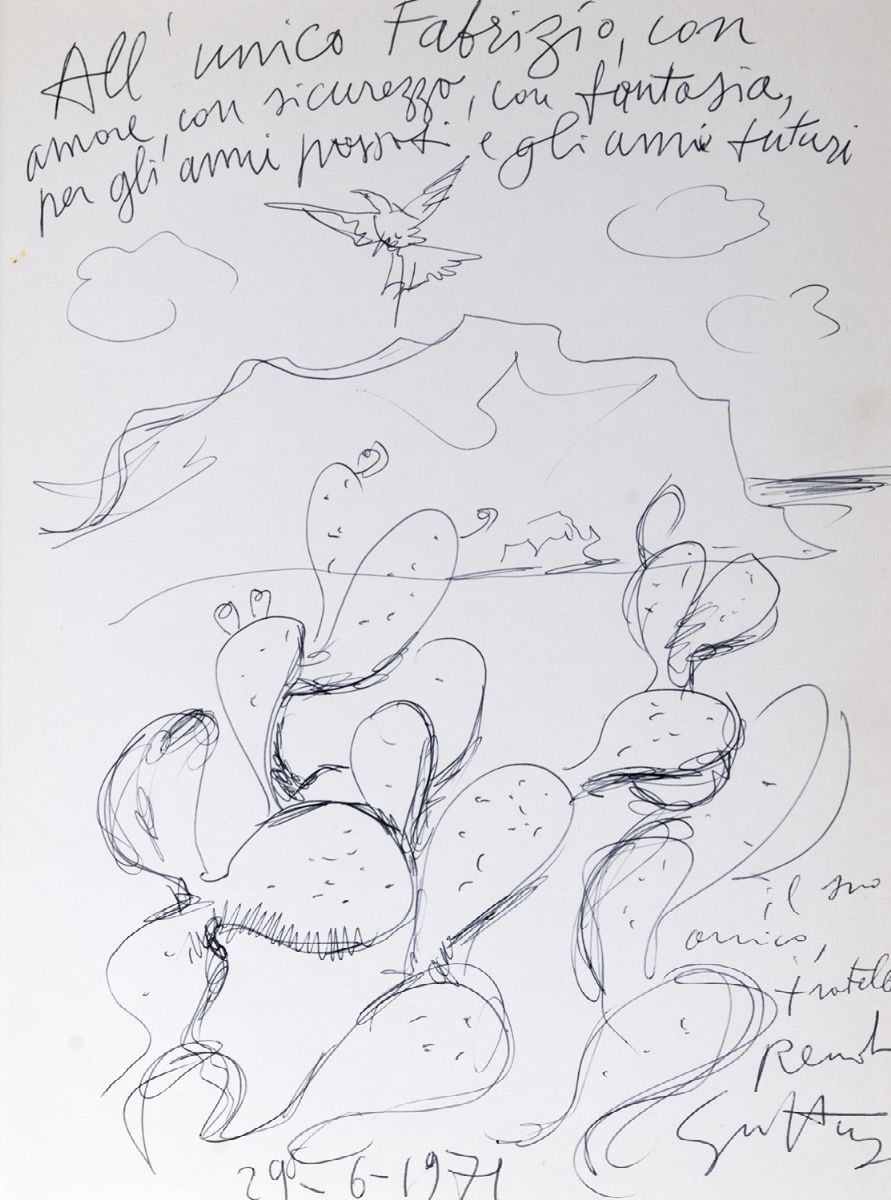 All' unico Fabrizio, con
amore, con sicurezza, con fantasia,
per gli anni passati e gli anni futuri
il suo
amico,
fratello
Renato
Guttuso
29-6-1971